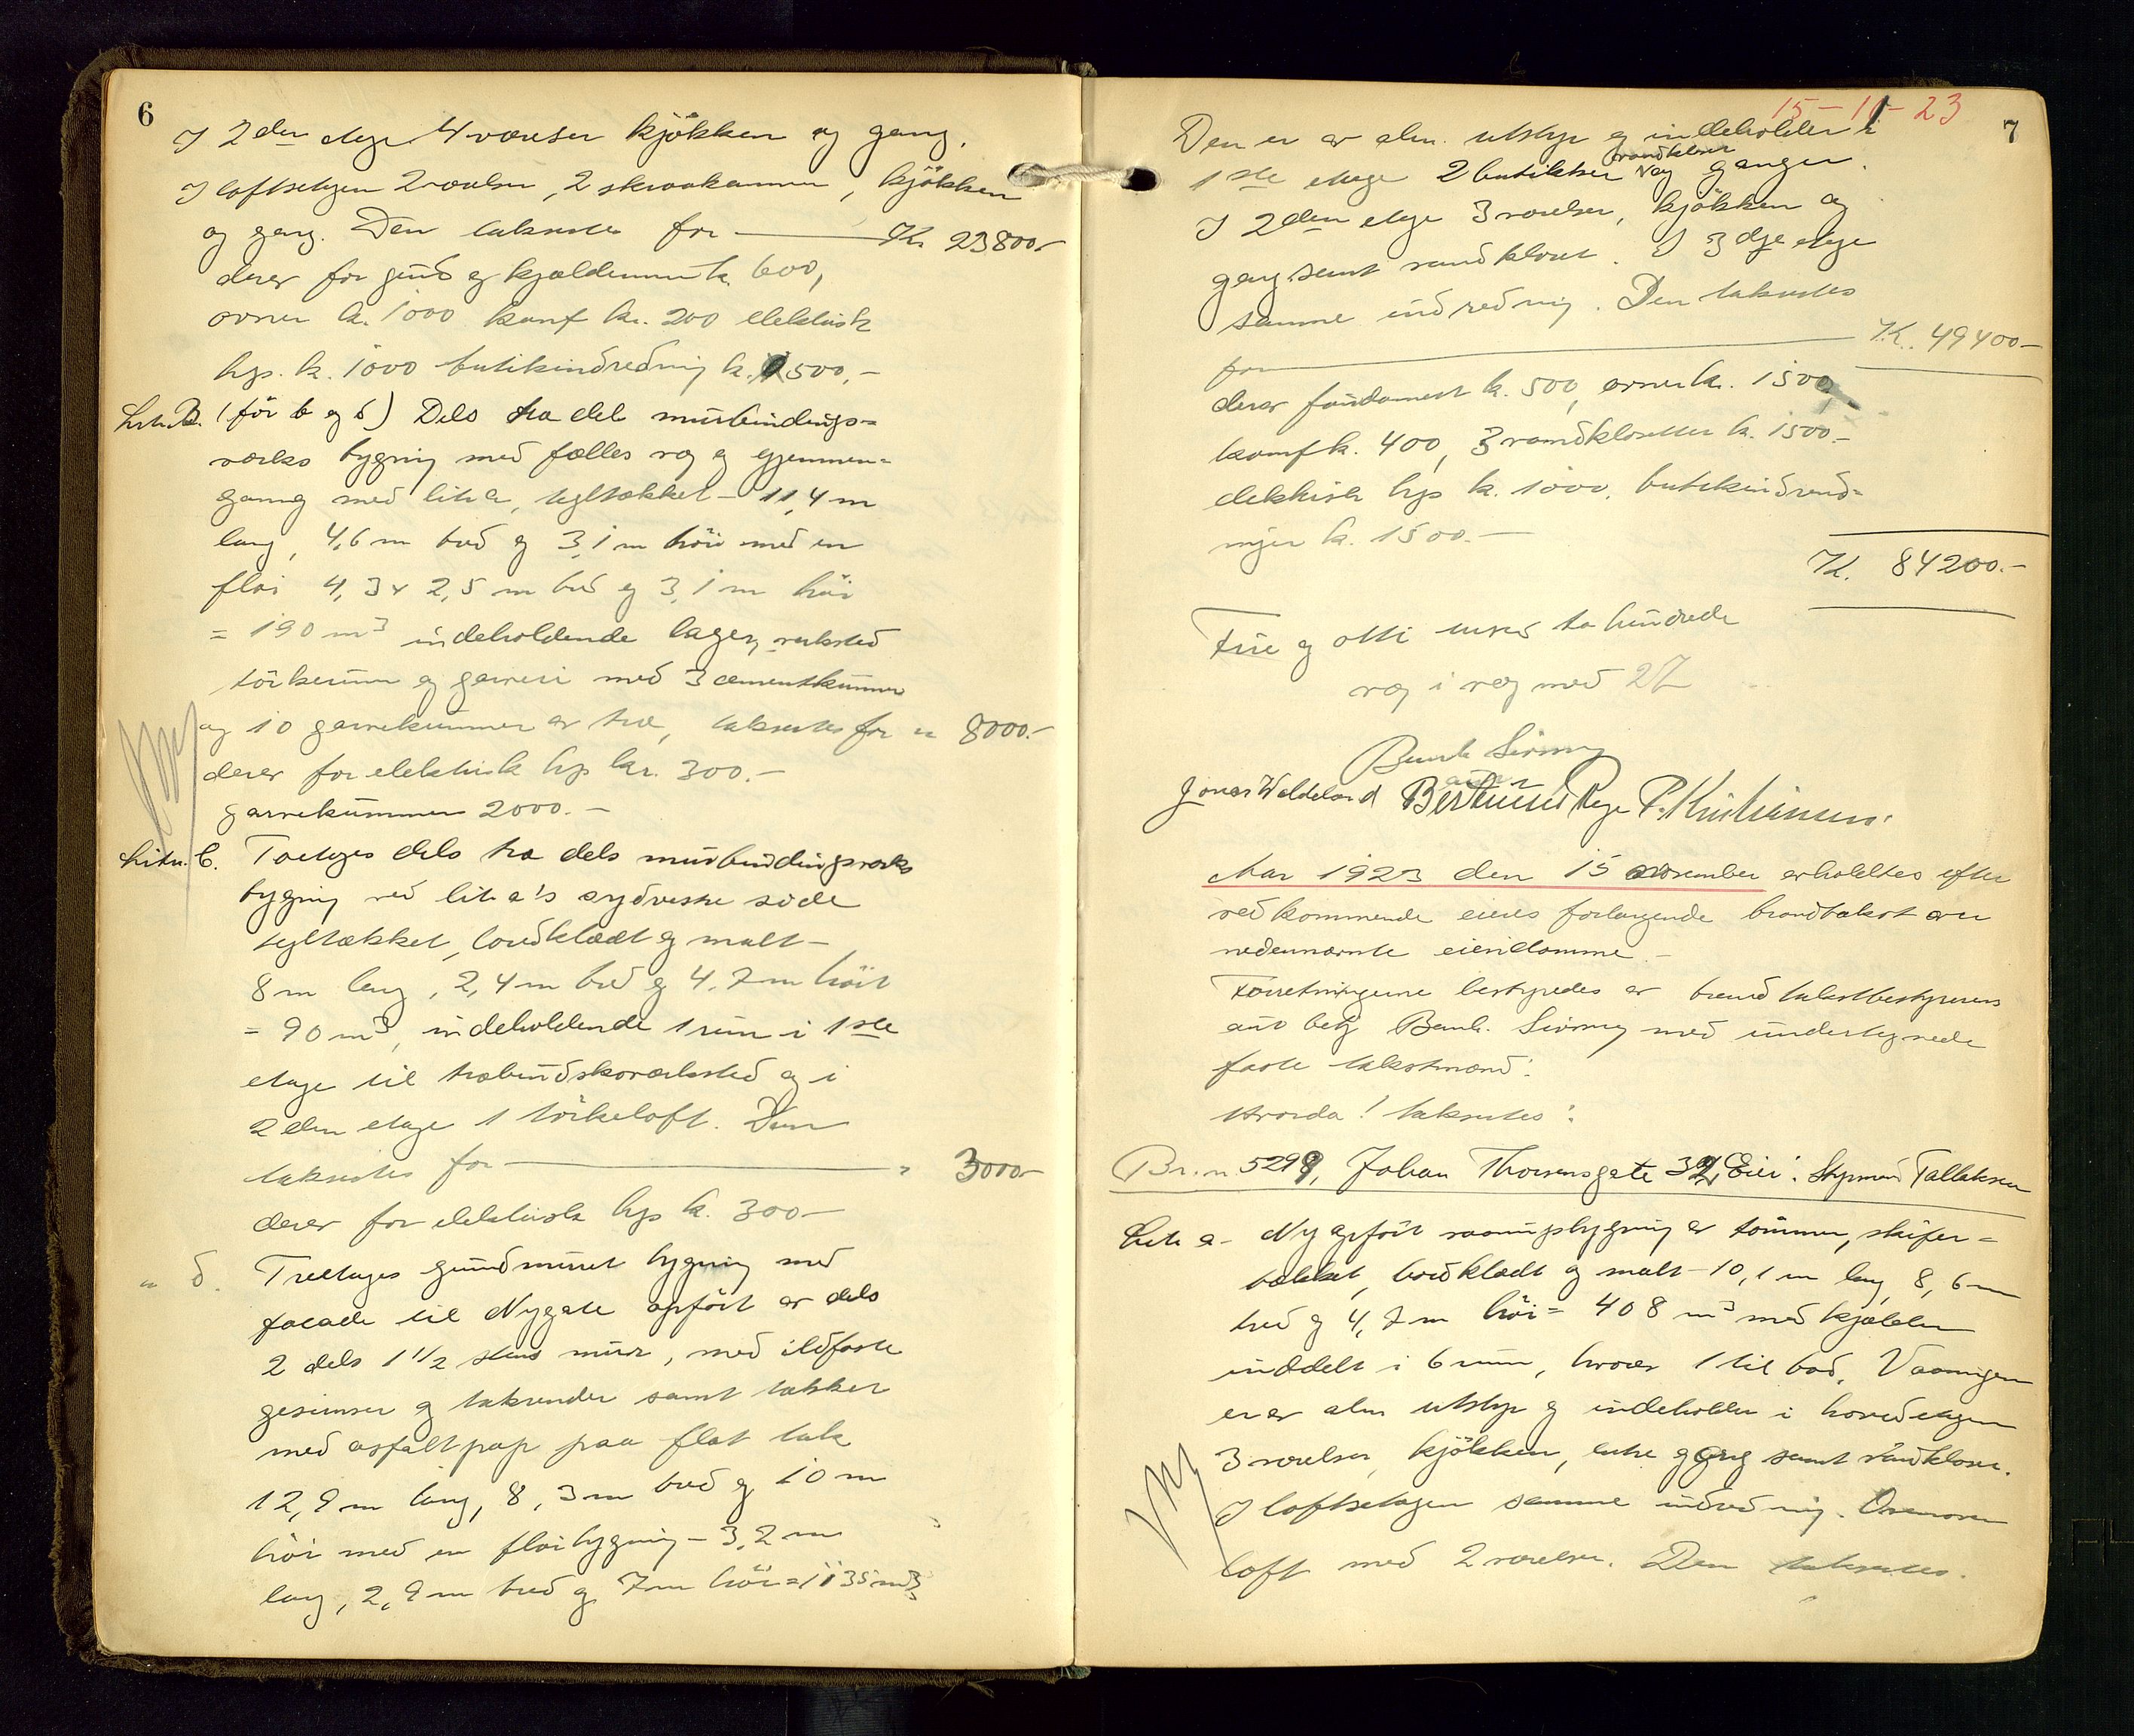 6
I 2den etage 4 værelser kjøkken og gang.
I loftsetagen 2 værelser, 2 skraakammer, kjøkken
og gang. Den taksertes for — Kr 23800.-
derav for grund og kjældermur k. 600,
ovner k. 1000 komf kr. 200 elektrisk
lys. k. 1000 butikindredning k. 500.-
Litr. B. (før b og d) Dels træ dels murbindings-
verks bygning med fælles væg og gjennem-
gang med litr a, tegltækket - 11,4 m
lang, 4,6 m bred og 3,1 m høi med en
fløi 4,3 x 2,5 m bred og 3,1 m høi
= 190 m³ indeholdende lager, verksted
tørkerum og garveri med 3 cementkummer
og 10 garvekummer av træ, taksertes for " 8000.-
derav for elektrisk lys kr. 300.-
garvekummer 2000.-
Litr. C. Toetages dels træ dels murbindingsverks
bygning ved litr a's sydvestre side
tegltækket, bordklædt og malt -
8 m lang, 2,4 m bred og 4,7 m høit
= 90 m³, indeholdende 1 rum i 1ste
etage til træbundskoverksted og i
2den etage 1 tørkeloft. Den
taksertes for — " 3000.-
derav for elektrisk lys k. 300.-
" d. Treetages grundmuret bygning med
facade til Nygate opført av dels
2 dels 1 1/2 stens mur, med ildfaste
gesimser og takrender samt tækket
med asfaltpap paa flat tak
12,9 m lang, 8,3 m bred og 10 m
høi med en fløibygning - 3,2 m
lang, 2,9 m bred og 7 m høi = 1135 m³
15-11-23
7
Den er av alm. utstyr og indeholder i
1ste etage 2 butikker vandkloset og ganger.
I 2den etage 3 værelser, kjøkken og
gang samt vandkloset. I 3dje etage
samme indredning. Den taksertes
for — K. 49400.-
derav fundament k. 500, ovner kr. 1500,
komf k. 400, 3 vandklosetter k. 1500.-
elektrisk lys k. 1000, butikindred-
ninger k. 1500.-
K. 84200.-
Fire og otti tusen to hundrede
væg i væg med 27
Jonas Waldeland Bertinius Rege P. Kristiansen.
Aar 1923 den 15 november avholdtes efter
vedkommende eieres forlangende brandtakst over
nedennævnte eiendomme.-
Forretningerne bestyredes av brandtakstbestyrerens
aut. betj med undertegnede
faste takstmænd:
Hvorda! taksertes:
Br.n. 5299, Johan Thorsensgate 32, Eier: Styrmand Tallaksen
Litr a - Ny opført vaaningsbygning av tømmer, skifer-
tækket, bordklædt og malt - 10,1 m lang, 8,6 m
bred og 4,7 m høi = 408 m³ med kjælder
inddelt i 6 rum, hvorav 1 til bad. Vaaningen
er av alm utstyr og indeholder i hovedetagen
3 værelser, kjøkken, entre og gang samt vandkloset.
I loftsetagen samme indredning. Ovenover
loft med 2 værelser. Den taksertes.